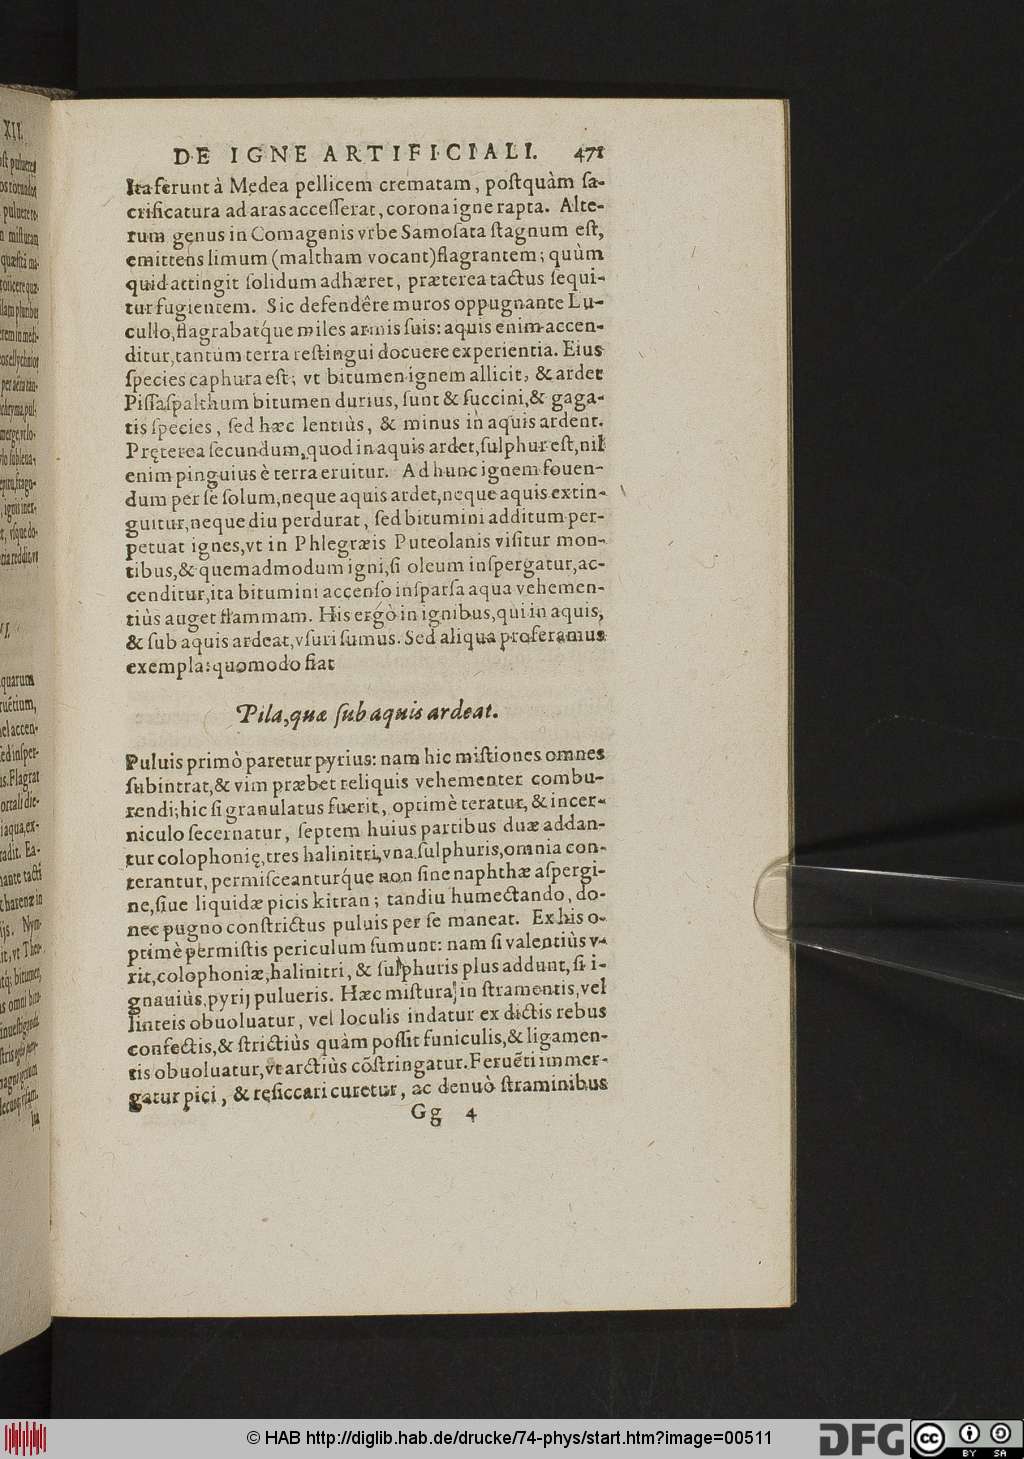 DE IGNE ARTIFICIALI. 471
Ita ferunt à Medea pellicem crematam, postquàm sa-
crificatura ad aras accesserat, corona igne rapta. Alte-
rum genus in Comagenis vrbe Samosata stagnum est,
emittens limum (maltham vocant) flagrantem; quùm
quid attingit solidum adhæret, præterea tactus sequi-
tur fugientem. Sic defendêre muros oppugnante Lu-
cullo, flagrabatq́ue miles armis suis: aquis enim accen-
ditur, tantùm terra restingui docuere experientia. Eius
species caphura est; vt bitumen ignem allicit, & ardet
Pissaspalthum bitumen durius, sunt & succini, & gaga-
tis species, sed hæc lentiùs, & minus in aquis ardent.
Pręterea secundum, quod in aquis ardet, sulphur est, nil
enim pinguius è terra eruitur. Ad hunc ignem fouen-
dum per se solum, neque aquis ardet, neque aquis extin-
guitur, neque diu perdurat, sed bitumini additum per-
petuat ignes, vt in Phlegræis Puteolanis visitur mon-
tibus, & quemadmodum igni, si oleum inspergatur, ac-
cenditur, ita bitumini accenso insparsa aqua vehemen-
tiùs auget flammam. His ergò in ignibus, qui in aquis,
& sub aquis ardeat, vsuri sumus. Sed aliqua proferamus
exempla: quomodo fiat
Pila, quæ sub aquis ardeat.
Puluis primò paretur pyrius: nam hic mistiones omnes
subintrat, & vim præbet reliquis vehementer combu-
rendi; hic si granulatus fuerit, optimè teratur, & incer-
niculo secernatur, septem huius partibus duæ addan-
tur colophonię, tres halinitri, vna sulphuris, omnia con-
terantur, permisceanturq́ue non sine naphthæ aspergi-
ne, siue liquidæ picis kitran; tandiu humectando, do-
nec pugno constrictus puluis per se maneat. Ex his o-
ptimè permistis periculum sumunt: nam si valentiùs v-
rit, colophoniæ, halinitri, & sulphuris plus addunt, si i-
gnauiùs, pyrij pulueris. Hæc mistura in stramentis, vel
linteis obuoluatur, vel loculis indatur ex dictis rebus
confectis, & strictiùs quàm possit funiculis, & ligamen-
tis obuoluatur, vt arctiùs cõstringatur. Feruẽti immer-
gatur pici, & ręsiccari curetur, ac denuò straminibus
Gg 4
© HAB http://diglib.hab.de/drucke/74-phys/start.htm?image=00511
DFG
cc BY SA